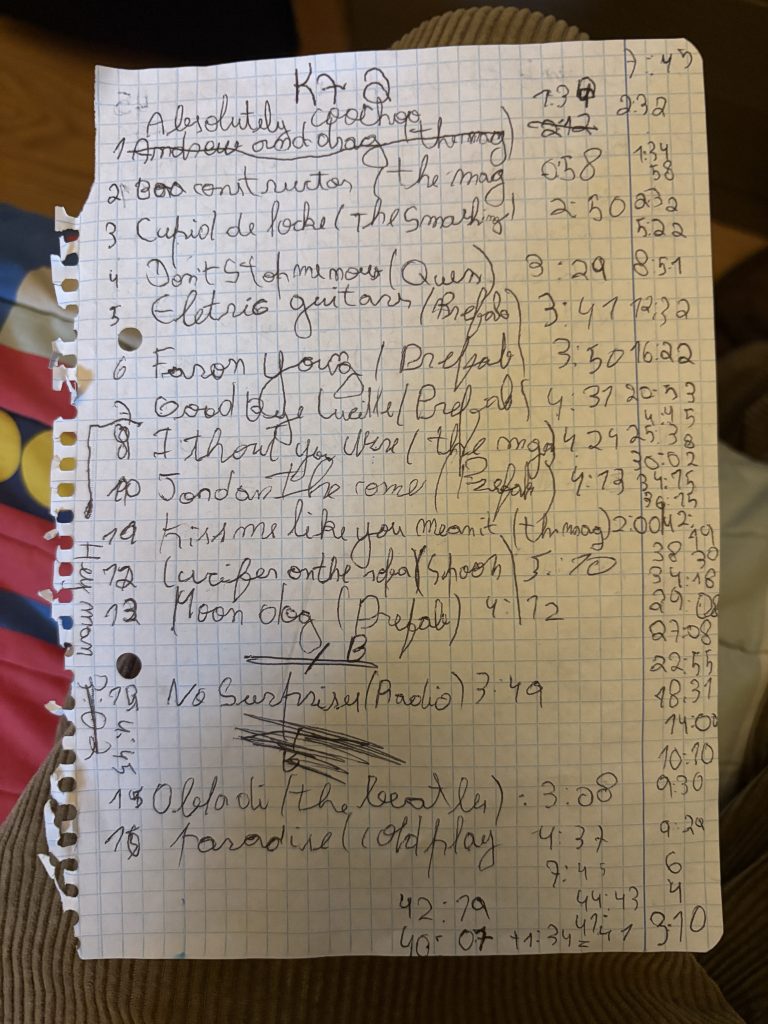 K7
7:45
Absolutely coochoo 1:34 2:32
1 Andrew and drag (the mag) 2:12
2 constructor / the mag 0:58 1:34
58
3 Cupid de locke (The Smashing) 2:50 2:32
5:22
4 Don't Stop me now (Queen) 3:29 8:51
5 Eletric guitars (Prefab) 3:41 12:32
6 Faron young / Prefab) 3:50 16:22
7 Good bye lucille / Prefab) 4:31 20:53
4:45
8 I thout you were (the mga) 4 24 25:38
30:02
10 Jordan the come / (Prefab) 4:13 34:15
Kiss me like you meant it (the mag) 2:00 42:19
38:30
12 Lucifer on the (Spoon) 5:10 34:18
13 Moon dog (Prefab) 4:12 29:08
27:08
B
22:55
No Surprises (Radio) 3:49 18:31
14:00
10:10
15 Obladi (the beatles) : 3:08 9:30
16 paradise / Coldplay 4:37 9:29
7:45 6
42:19 44:43 4
40:07 +1:34= 41:41 3:10
Hey man
4:45